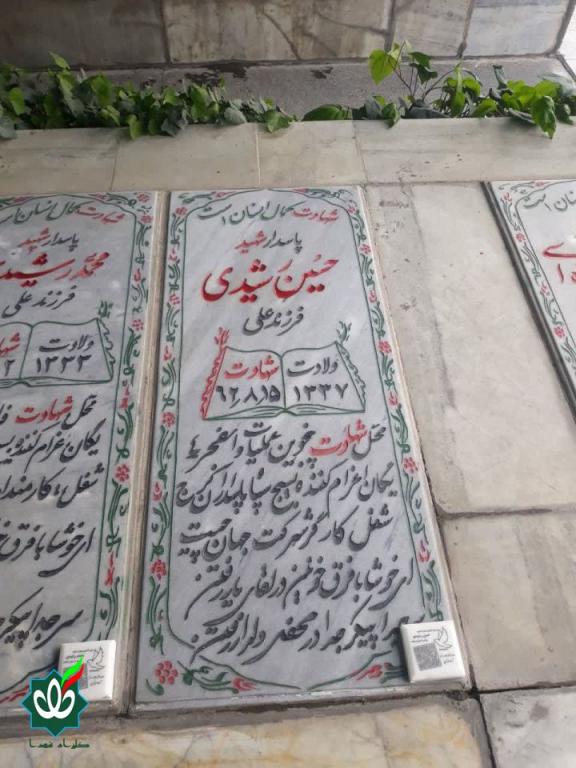 شهادت کمال انسان است
پاسدار شهید
حسین رشیدی
فرزند علی
ولادت
۱۳۳۷
شهادت
۶۲٫۸٫۱۵
محل شهادت پنجوین عملیات والفجر۴
یگان اعزام کننده بسیج سپاه پاسداران کرج
شغل کارگر شرکت جهان چیت
ای خوشا با فرق خونین در لقای یار رفتن
سر جدا پیکر جدا در محفل دلدار رفتن
شهادت کمال انسان است
پاسدار شهید
محمد رشیدی
فرزند علی
ولادت
۱۳۳۳
محل شهادت
یگان اعزام کننده
شغل: کارمند
ای خوشا با فرق
سر جدا پیکر
گلزار شهدا